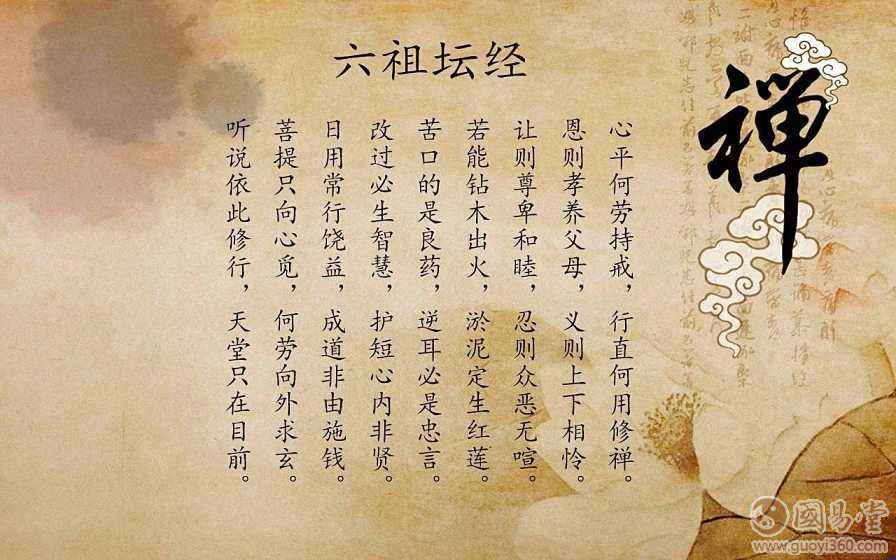 六祖坛经
禅
心平何劳持戒，行直何用修禅。
恩则孝养父母，义则上下相怜。
让则尊卑和睦，忍则众恶无喧。
若能钻木出火，淤泥定生红莲。
苦口的是良药，逆耳必是忠言。
改过必生智慧，护短心内非贤。
日用常行饶益，成道非由施钱。
菩提只向心觅，何劳向外求玄。
听说依此修行，天堂只在目前。
國易堂
www.guoyi360.com